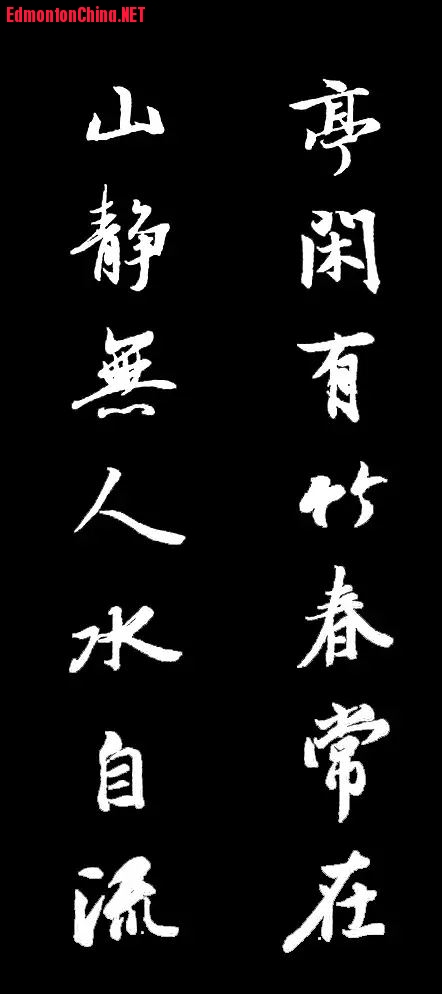 EdmontonChina.NET
亭閑有竹春常在
山静無人水自流